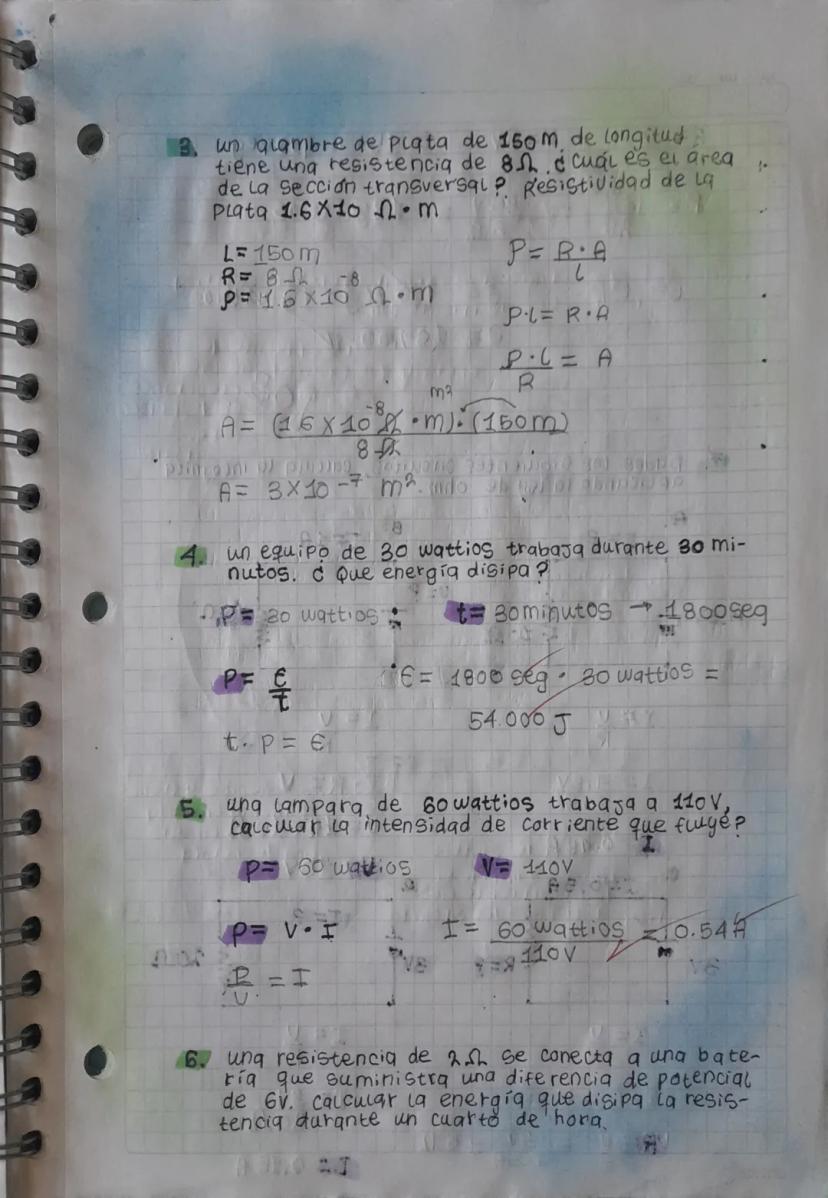 3. un alambre de plata de 150m de longitud
tiene una resistencia de 8Ω. ¿cuál es el área
de la sección transversal? Resistividad de la
plata 1.6×10 Ω·m
L= 150m
R= 8Ω
ρ= 1.6×10⁻⁸ Ω·m
ρ= R·A / L
ρ·L= R·A
ρ·L / R = A
m²
A= (1.6×10⁻⁸ Ω·m)·(150m) / 8Ω
A= 3×10⁻⁷ m²
4. un equipo de 30 wattios trabaja durante 30 mi-
nutos. ¿Que energía disipa?
P= 30 wattios
t= 30minutos → 1800seg
P= E / t
E= 1800 seg · 30 wattios =
54.000 J
t·P = E
5. una lampara de 60wattios trabaja a 110V,
calcular la intensidad de corriente que fluye?
I
P= 60 wattios
V= 110V
P= V·I
I= 60 wattios / 110V = 0.54A
P / V = I
6. una resistencia de 2Ω se conecta a una bate-
ría que suministra una diferencia de potencial
de 6v. calcular la energía que disipa la resis-
tencia durante un cuarto de hora.